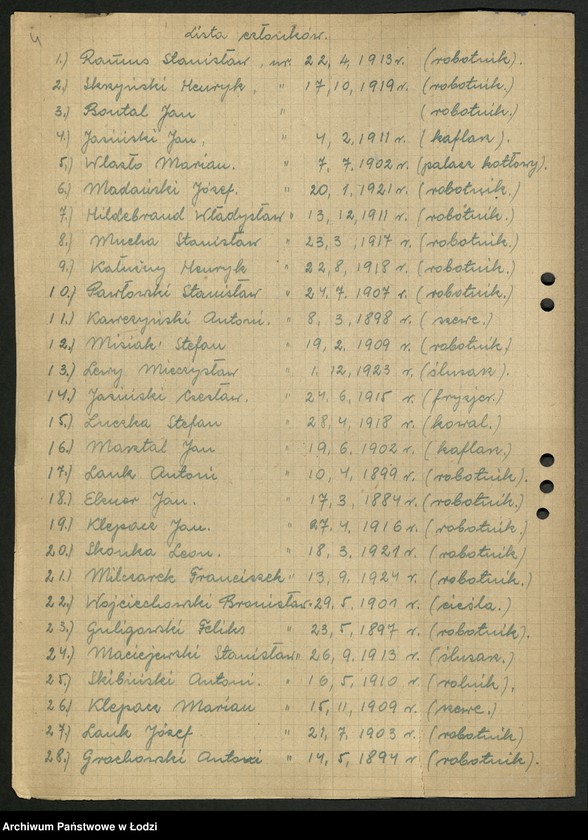 4
Lista członków.
1.) Raумus Stanisław, ur. 22, 4, 1913 r. (robotnik).
2.) Skrzyński Henryk, " 17, 10, 1919 r. (robotnik.)
3.) Boutal Jan " (robotnik.)
4.) Jasiński Jan, " 4, 2, 1911 r. (kaflarz).
5.) Wlazło Marian. " 7, 7, 1902 r. (palacz kotłowy).
6.) Madański Józef. " 20, 1, 1921 r. (robotnik.)
7.) Hildebrand Władysław " 13, 12, 1911 r. (robotnik.)
8.) Mucha Stanisław " 23, 3 1917 r. (robotnik.)
9.) Kałużny Henryk " 22, 8, 1918 r. (robotnik.)
10.) Pawłowski Stanisław " 24. 7. 1907 r. (robotnik.)
11.) Kawczyński Antoni. " 8, 3, 1898 r. (szewc.)
12.) Misiak Stefan " 19, 2. 1909 r. (robotnik.)
13.) Lewy Mieczysław " 1, 12, 1923 r. (ślusarz.)
14.) Jasiński Czesław. " 24. 6, 1915 r. (fryzjer.)
15.) Luczka Stefan " 28, 4, 1918 r. (kowal.)
16.) Masztal Jan " 19, 6. 1902 r. (kaflarz.)
17.) Lauk Antoni " 10, 4, 1899 r. (robotnik).
18.) Jan. " 17, 3, 1884 r. (robotnik)
19.) Klepacz Jan. " 27. 4. 1916 r. (robotnik.)
20.) Skonka Leon. " 18, 3. 1921 r. (robotnik)
21.) Milczarek Franciszek " 13, 9. 1924 r. (robotnik.)
22.) Wojciechowski Bronisław. 29, 5, 1901 r. (cieśla.)
23.) Guligowski Feliks " 23, 5, 1897 r. (robotnik).
24.) Maciejewski Stanisław " 26, 9. 1913 r. (ślusarz.)
25.) Skibiński Antoni. " 16, 5, 1910 r. (rolnik),
26.) Klepacz Marian " 15, 11, 1909 r. (szewc.)
27.) Lauk Józef " 21, 7. 1903 r. (robotnik)
28.) Grochowski Antoni " 14, 5, 1894 r. (robotnik).
Archiwum Państwowe w Łodzi